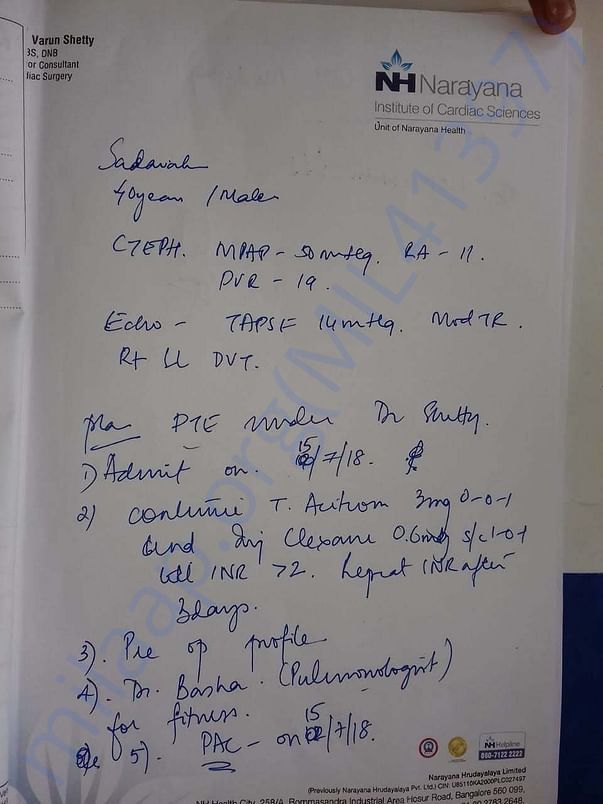 Varun Shetty
BS, DNB
or Consultant
iac Surgery
NH Narayana
Institute of Cardiac Sciences
Unit of Narayana Health
Sadavah
40years / Male
CTEPH. MPAP - 50 mmHg. RA - 11.
PVR - 19.
Echo - TAPSE 14 mmHg. Mod TR.
Rt LL DVT.
Plan PTE under Dr Shetty.
1) Admit on. 15/7/18.
2) Continue T. Acitrom 3mg 0-0-1
and Inj Clexane 0.6mg s/c 1-0-1
till INR >2. Repeat INR after
3days.
3). Pre op profile
4). Dr. Basha. (Pulmonologist)
for fitness.
5). PAC - on 15/7/18.
milaap.org(MIL413577
NH Helpline
080-7122 2222
Narayana Hrudayalaya Limited
(Previously Narayana Hrudayalaya Pvt. Ltd.) CIN: U85110KA2000PLC027497
NH Health City, 258/A, Bommasandra Industrial Area Hosur Road, Bangalore 560 099,